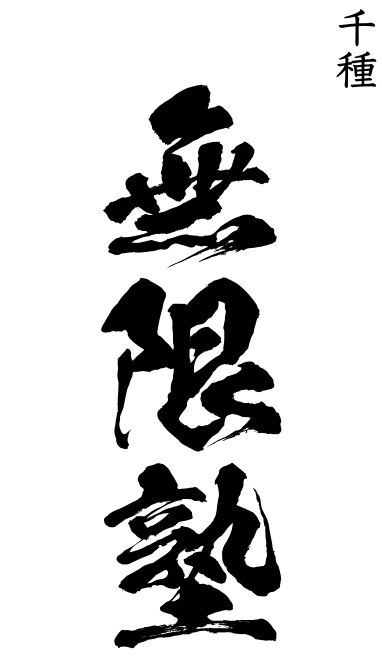 千種
無限塾